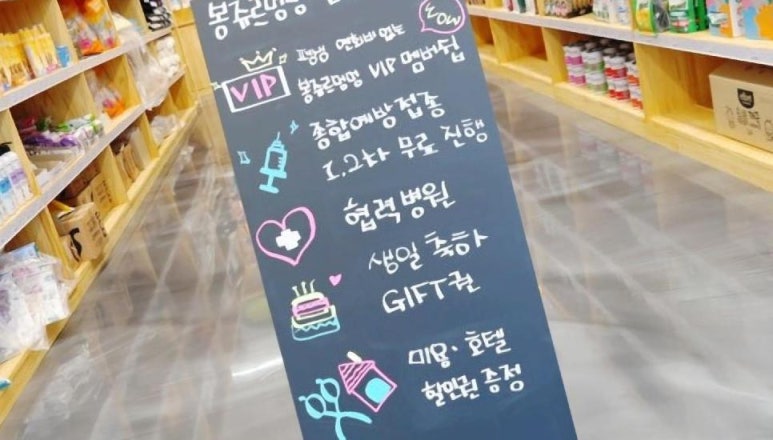 봉쥬르멍멍
NOW
평생 연회비 없는
VIP
봉쥬르멍멍 VIP 멤버쉽
종합예방접종
1,2차 무료 진행
협력병원
생일 축하
GIFT권
미용·호텔
할인권 증정